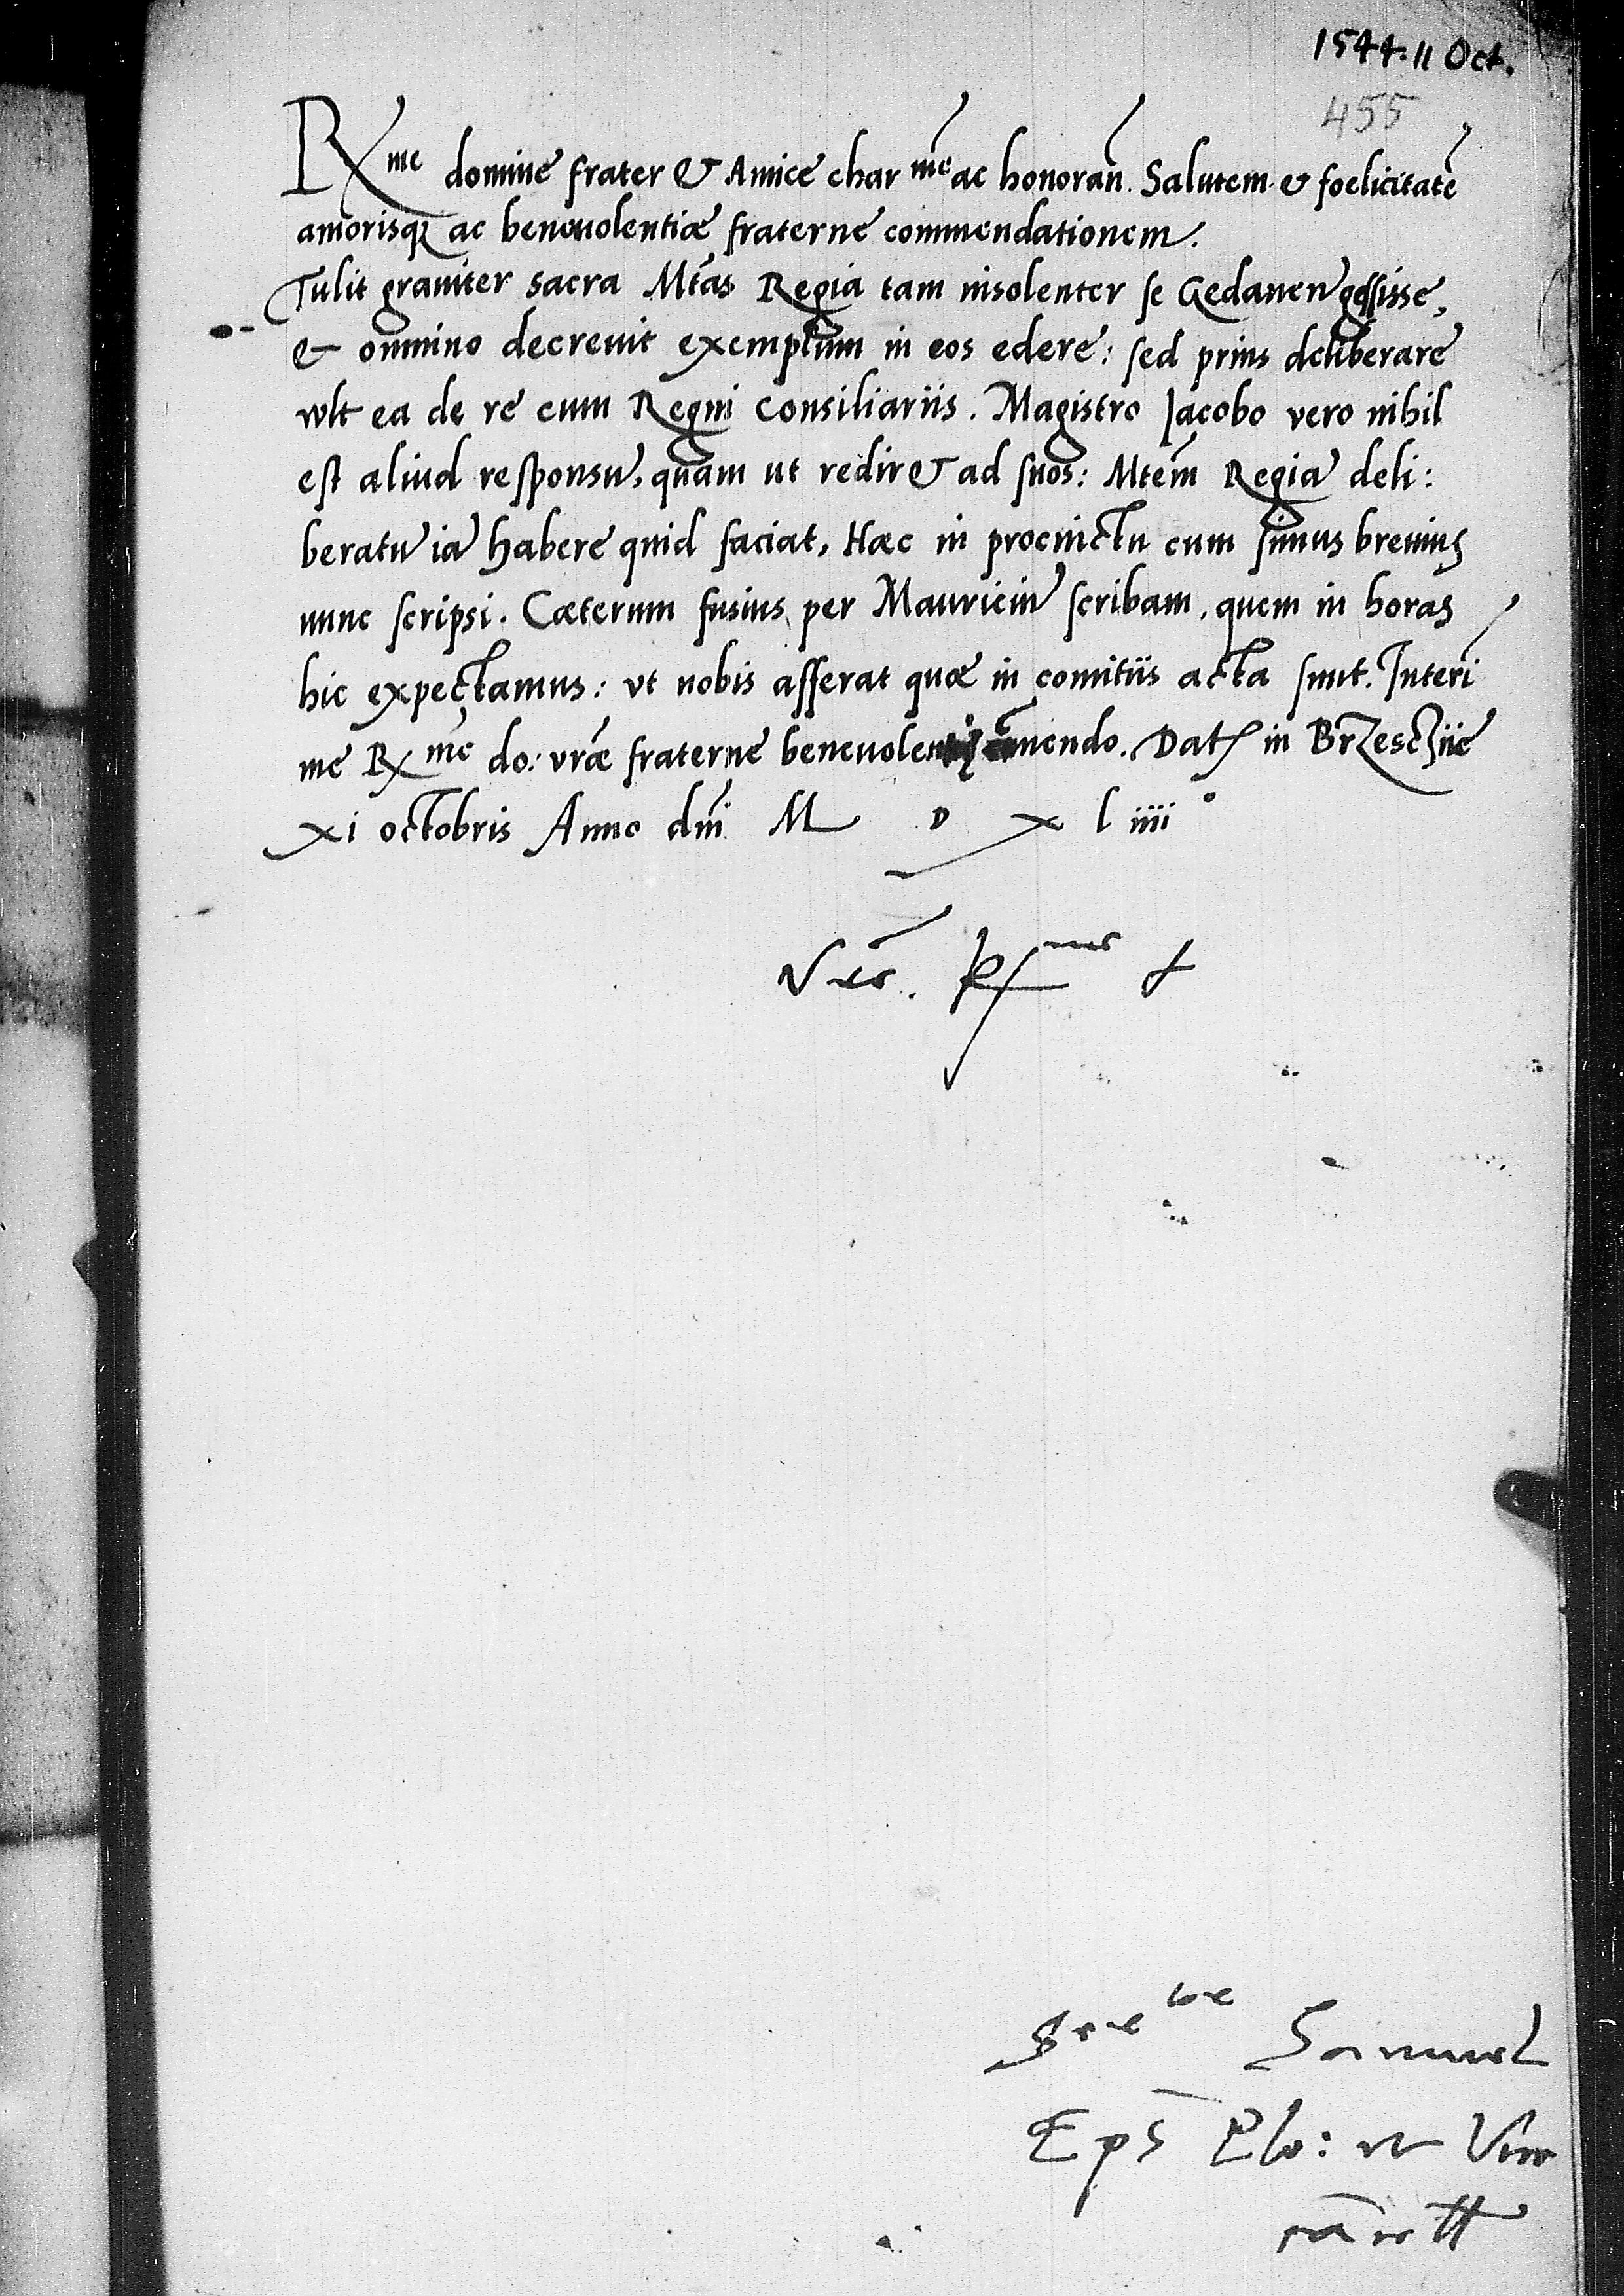 1544. 11 Oct.
455
Rx me domine frater & Amice char me ac honoran̄. Salutem & foelicitatē
amorisq; ac beneuolentiæ fraterne commendationem.
Tulit grauiter sacra Mtas Regia tam insolenter se Gedanen̄ gessisse,
& omnino decreuit exemplum in eos edere: sed prius deliberare
vult ea de re cum Regni Consiliariis. Magistro Jacobo vero nihil
est aliud responsū, quam ut rediret ad suos: Mtem Regiā deli:
beratū iā habere quid faciat, Hæc in procinctu cum simus breuius
nunc scripsi. Cæterum fusius per Mauriciū scribam, quem in horas
hic expectamus: vt nobis afferat quæ in comitiis acta sunt. Interī
me Rx me do: vræ fraterne beneuolen cōmendo. Dat in Brzesczie
xi octobris Anno dnī M D x l iiii°
&
Samuel
Eps Plo: